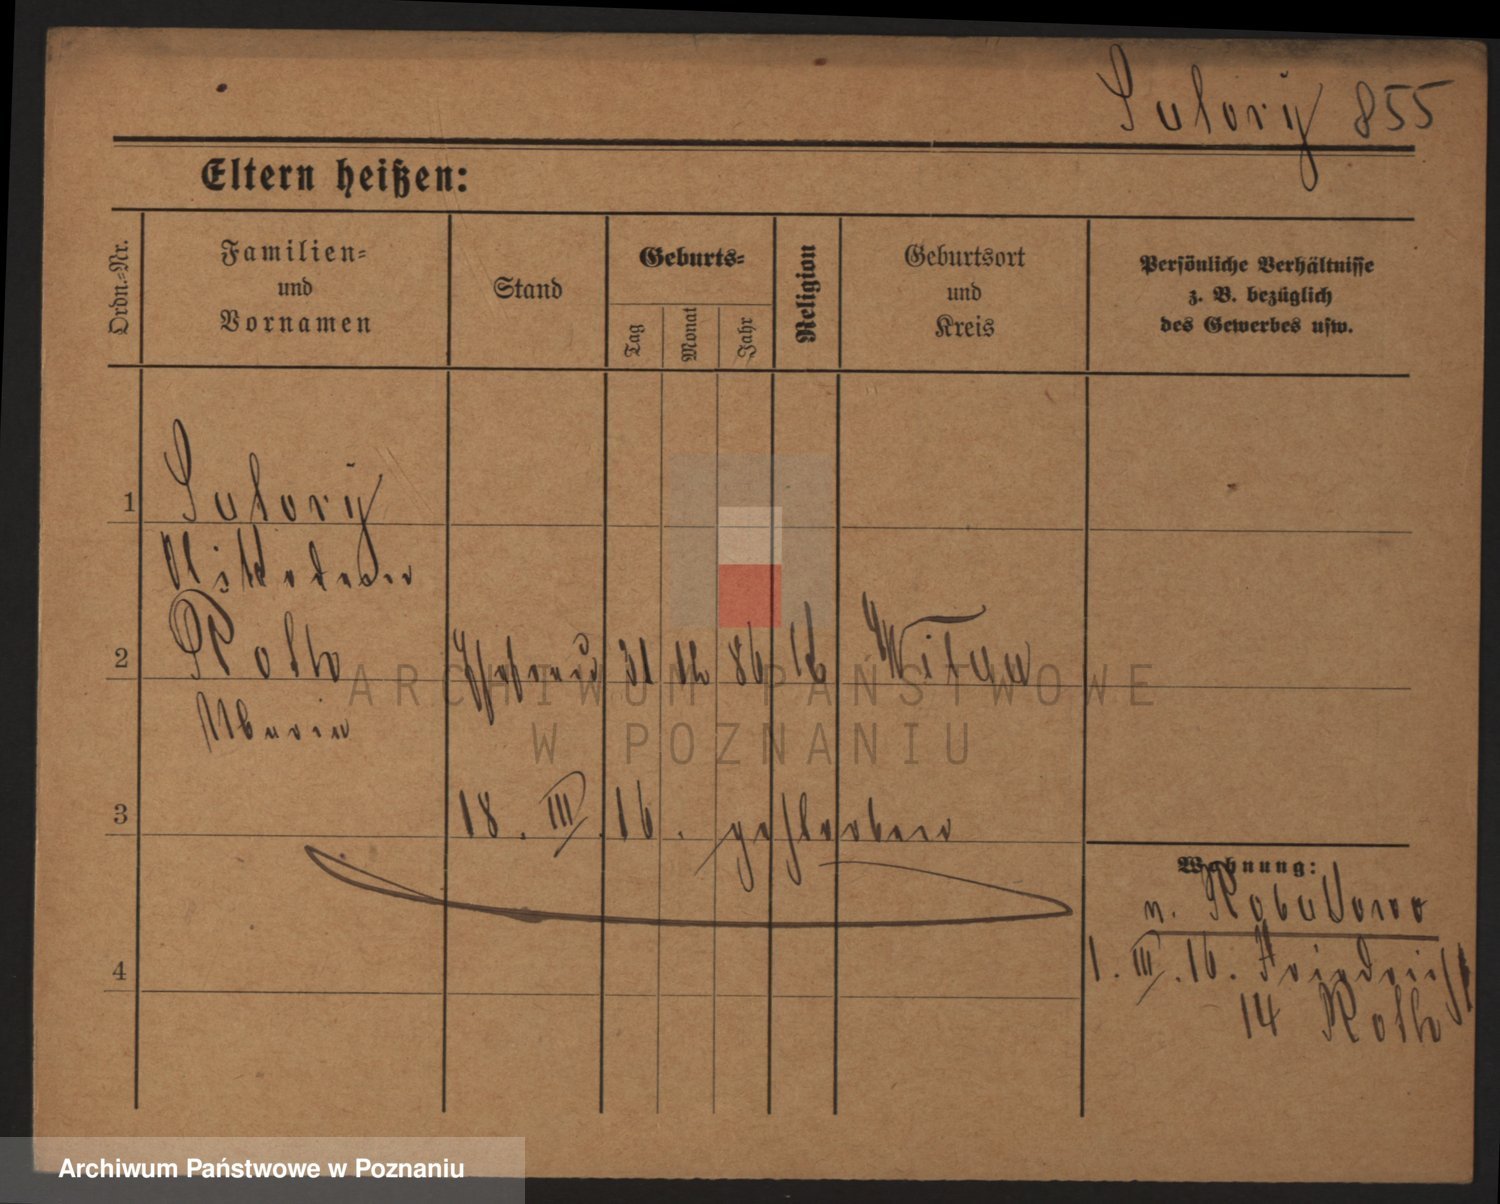 Sulory 855
Eltern heißen:
Ordn.-Nr.
Familien-
und
Vornamen
Stand
Geburts-
Tag
Monat
Jahr
Religion
Geburtsort
und
Kreis
Persönliche Verhältnisse
z. B. bezüglich
des Gewerbes usw.
1 Sulory
2 Roth Ehefrau 31 12 86 Witwe
Maria
3 18. III. 16. gestorben
Wohnung:
n.
4 1. III. 16. Friedrichstr
14 Roth
ARCHIWUM PAŃSTWOWE
W POZNANIU
Archiwum Państwowe w Poznaniu